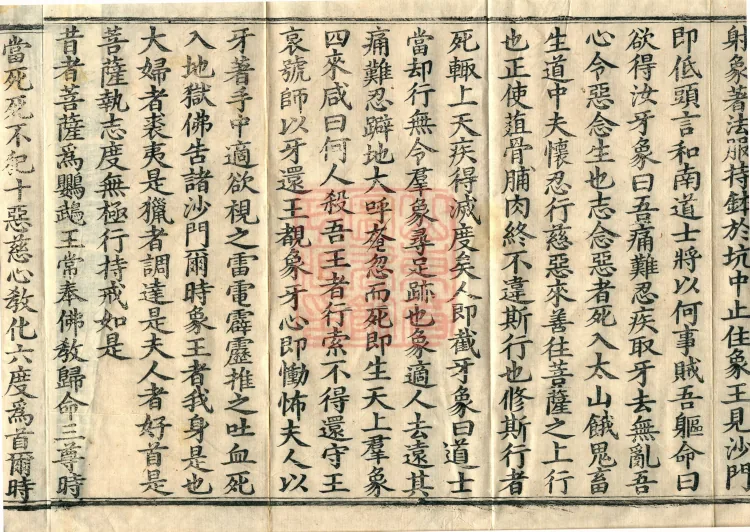 射象著法服持鉢於坑中止住象王見沙門
即低頭言和南道士將以何事賊吾軀命曰
欲得汝牙象曰吾痛難忍疾取牙去無亂吾
心令惡念生也志念惡者死入太山餓鬼畜
生道中夫懷忍行慈惡來善往菩薩之上行
也正使葅骨脯肉終不違斯行也修斯行者
死輙上天疾得滅度矣人即截牙象曰道士
當却行無令羣象尋足跡也象適人去遠其
痛難忍躃地大呼奄忽而死即生天上羣象
四來咸曰何人殺吾王者行索不得還守王
哀號師以牙還王覩象牙心即慟怖夫人以
牙著手中適欲視之雷電霹靂推之吐血死
入地獄佛告諸沙門爾時象王者我身是也
大婦者裘夷是獵者調達是夫人者好首是
菩薩執志度無極行持戒如是
昔者菩薩爲鸚鵡王常奉佛教歸命三尊時
當死死不犯十惡慈心教化六度爲首爾時